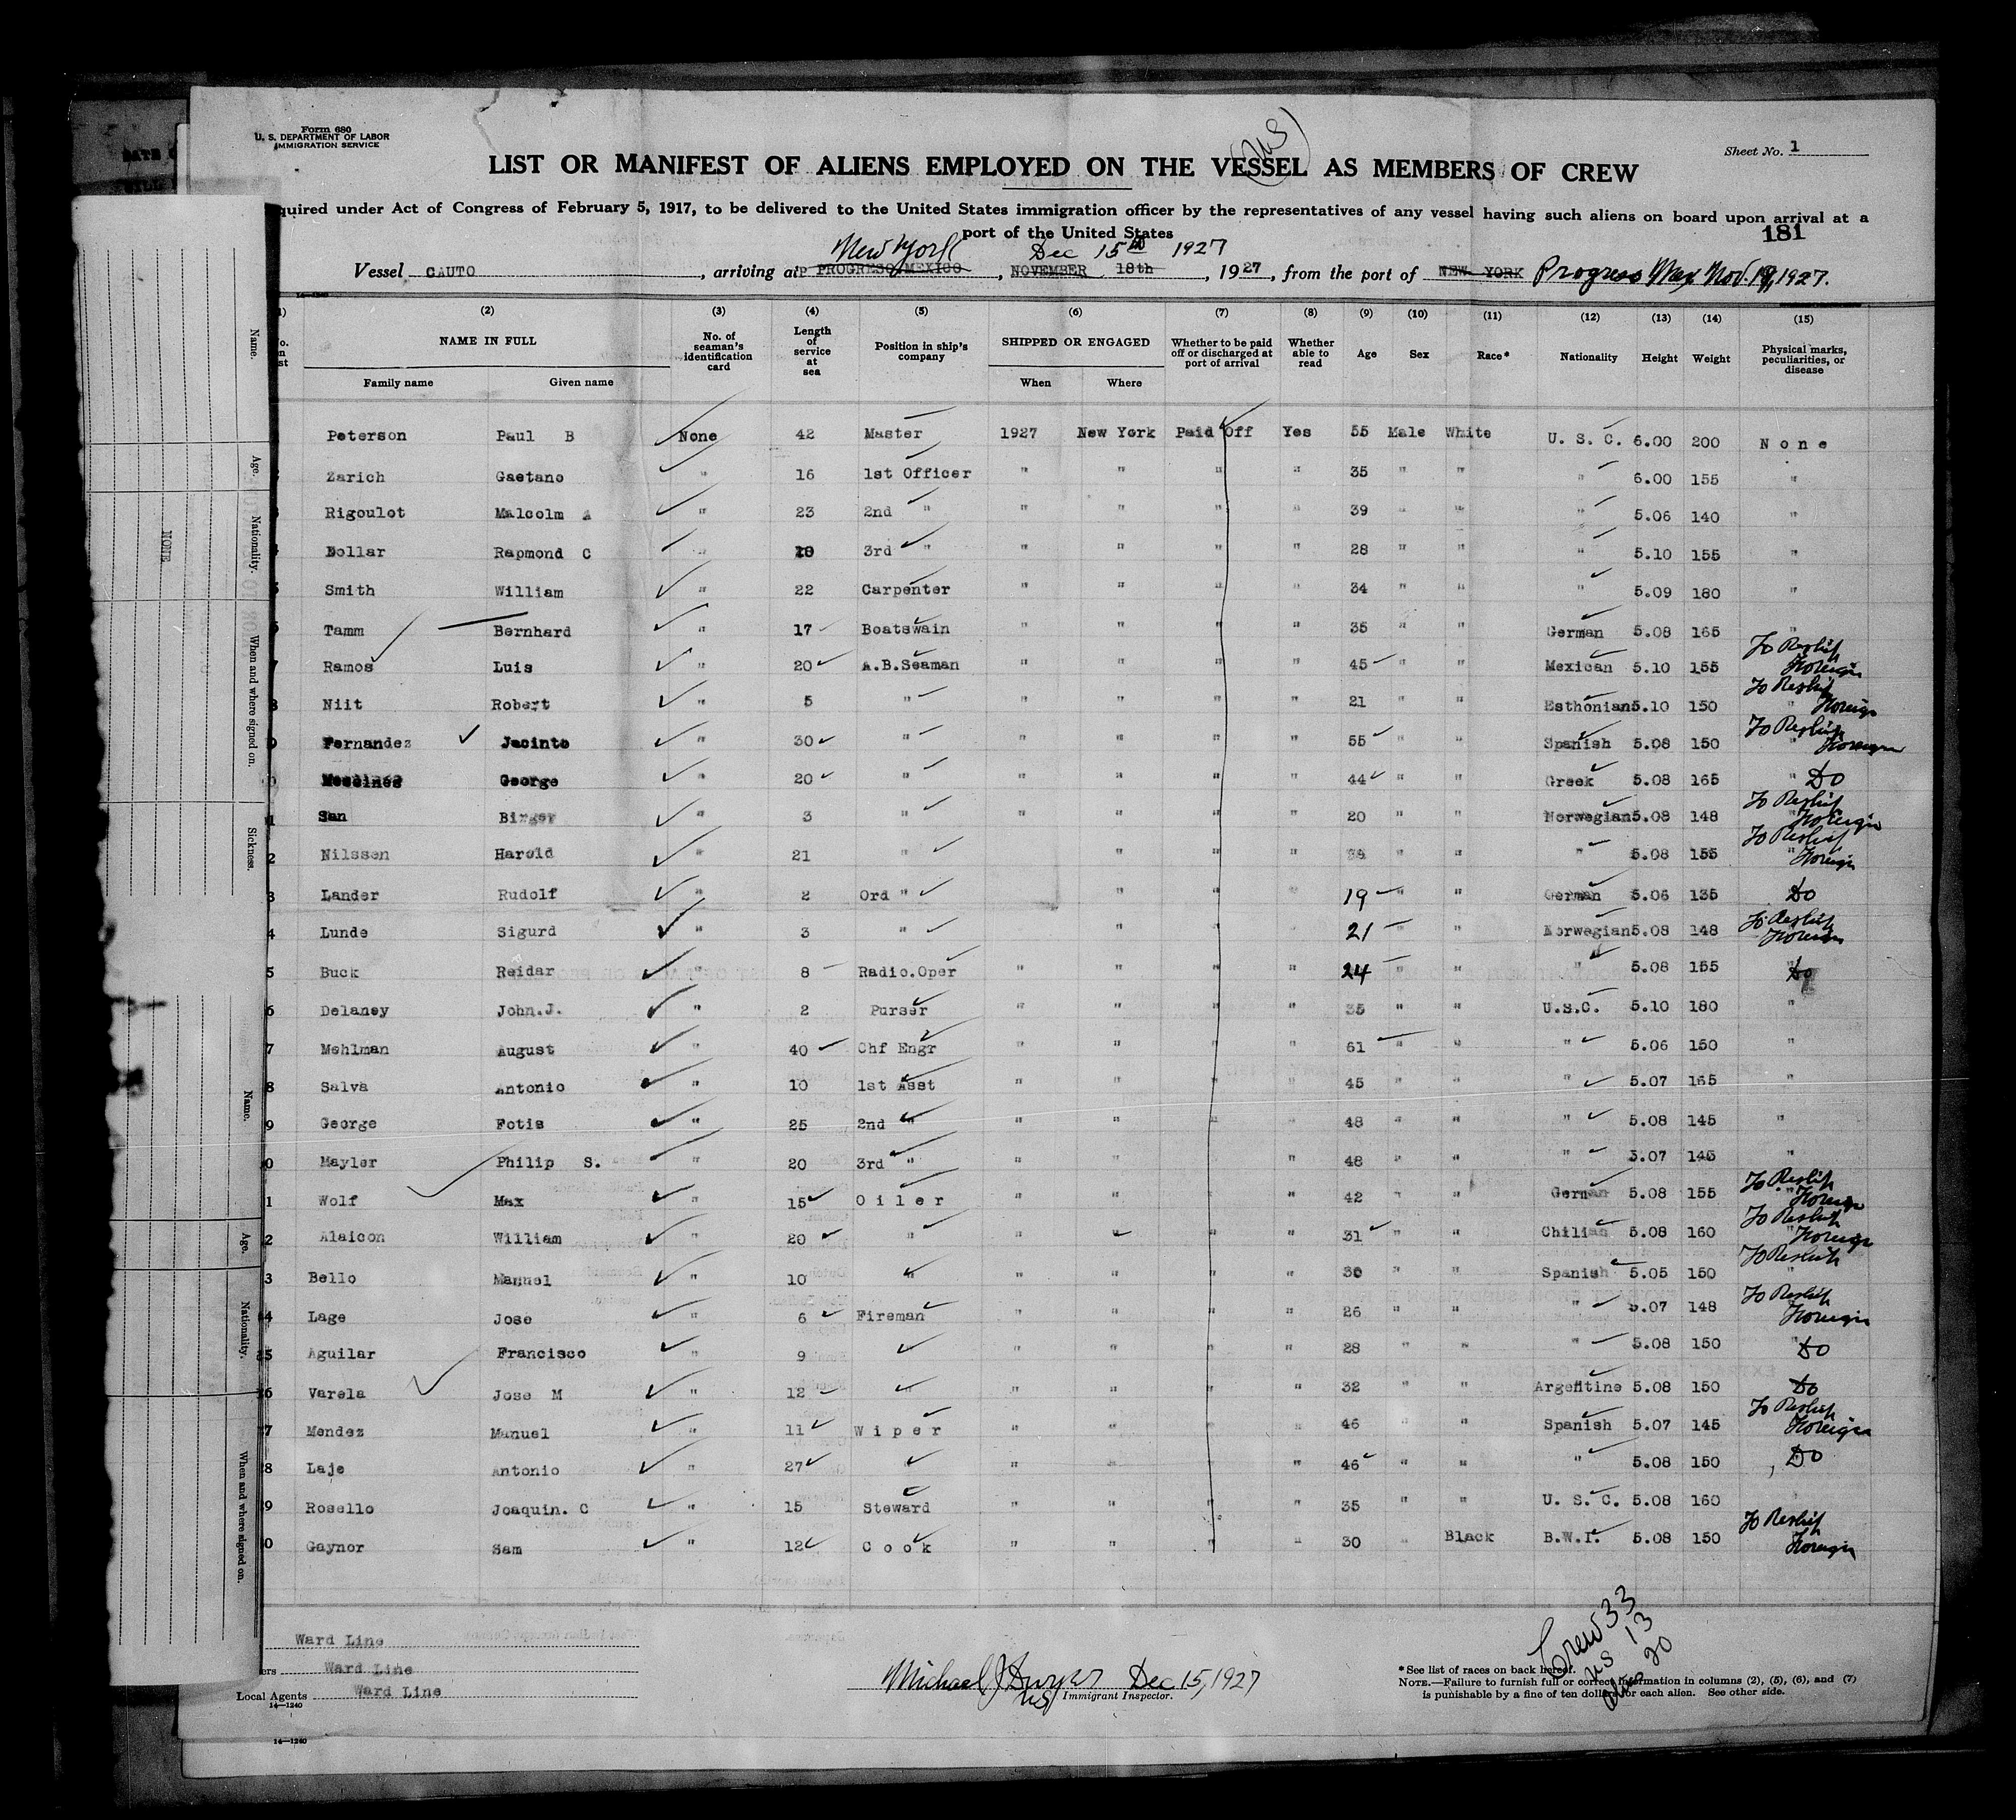 Form 680
U. S. DEPARTMENT OF LABOR
IMMIGRATION SERVICE
(US)
Sheet No. 1
LIST OR MANIFEST OF ALIENS EMPLOYED ON THE VESSEL AS MEMBERS OF CREW
quired under Act of Congress of February 5, 1917, to be delivered to the United States immigration officer by the representatives of any vessel having such aliens on board upon arrival at a
port of the United States
181
New York Dec 15th 1927
Vessel CAUTO, arriving at PROGRESO MEXICO, NOVEMBER 18th, 1927, from the port of NEW YORK Progreso Mex Nov. 19, 1927.
14—1240
(2) (3) (4) (5) (6) (7) (8) (9) (10) (11) (12) (13) (14) (15)
NAME IN FULL No. of seaman's identification card Length of service at sea Position in ship's company SHIPPED OR ENGAGED Whether to be paid off or discharged at port of arrival Whether able to read Age Sex Race* Nationality Height Weight Physical marks, peculiarities, or disease
Family name Given name When Where
Peterson Paul B None 42 Master 1927 New York Paid Off Yes 55 Male White U. S. C. 6.00 200 None
Zarich Gaetano " 16 1st Officer " " " " 35 " " " 6.00 155 "
Rigoulot Malcolm A " 23 2nd " " " " " 39 " " " 5.06 140 "
Dollar Rapmond C " 3rd " " " " " 28 " " " 5.10 155 "
Smith William " 22 Carpenter " " " " 34 " " " 5.09 180 "
Tamm Bernhard " 17 Boatswain " " " " 35 " " German 5.08 165 "
Ramos Luis " 20 A.B.Seaman " " " " 45 " " Mexican 5.10 155 To Reship Foreign
Niit Robert " 5 " " " " " 21 " " Esthonian 5.10 150 " To Reship Foreign
Fernandez Jacinto " 30 " " " " " 55 " " Spanish 5.08 150 " To Reship Foreign
George " 20 " " " " " 44 " " Greek 5.08 165 " Do
San Birger " 3 " " " " " 20 " " Norwegian 5.08 148 " To Reship Foreign
Nilssen Harold " 21 " " " " " " " 5.08 155 " To Reship Foreign
Lander Rudolf " 2 Ord " " " " 19 " " German 5.06 135 Do
Lunde Sigurd " 3 " " " " 21 " " Norwegian 5.08 148 To Reship Foreign
Buck Reidar " 8 Radio.Oper " " " " 24 " " " 5.08 155 " Do
Delaney John.J. " 2 Purser " " " " 35 " " U.S.C. 5.10 180 "
Mehlman August " 40 Chf Engr " " " " 61 " " " 5.06 150 "
Salva Antonio " 10 1st Asst " " " " 45 " " " 5.07 165 "
George Fotis " 25 2nd " " " " " 48 " " " 5.08 145 "
Mayler Philip S. " 20 3rd " " " " " 48 " " " 5.07 145 "
Wolf Max " 15 Oiler " " " " 42 " " German 5.08 155 " To Reship Foreign
Alaicon William " 20 " " " " " 31 " " Chilian 5.08 160 " To Reship Foreign
Bello Manuel " 10 " " " " " 30 " " Spanish 5.05 150 " To Reship
Lage Jose " 6 Fireman " " " " 26 " " " 5.07 148 To Reship Foreign
Aguilar Francisco " 9 " " " " 28 " " " 5.08 150 " Do
Varela Jose M " 12 " " " " " 32 " " Argentine 5.08 150 Do
Mendez Manuel " 11 Wiper " " " " 46 " " Spanish 5.07 145 To Reship Foreign
Laje Antonio " 27 " " " " 46 " " " 5.08 150 Do
Rosello Joaquin. C " 15 Steward " " " " 35 " " U. S. C. 5.08 160
Gaynor Sam " 12 Cook " " " " 30 " Black B.W.I. 5.08 150 To Reship Foreign
Name.
Age.
Nationality.
When and where signed on.
Sickness.
NONE
Name.
Age.
Nationality.
When and where signed on.
Ward Line
ers Ward Line
Local Agents Ward Line
14—1240
14—1240
Michael J Dwyer Dec 15, 1927
US Immigrant Inspector.
Crew 33
US 13
Alien 20
*See list of races on back hereof.
NOTE.—Failure to furnish full or correct information in columns (2), (5), (6), and (7)
is punishable by a fine of ten dollars for each alien. See other side.